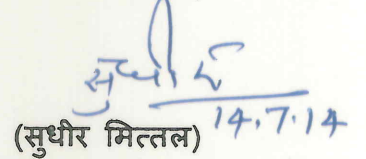 सुधीर
14.7.14
(सुधीर मित्तल)